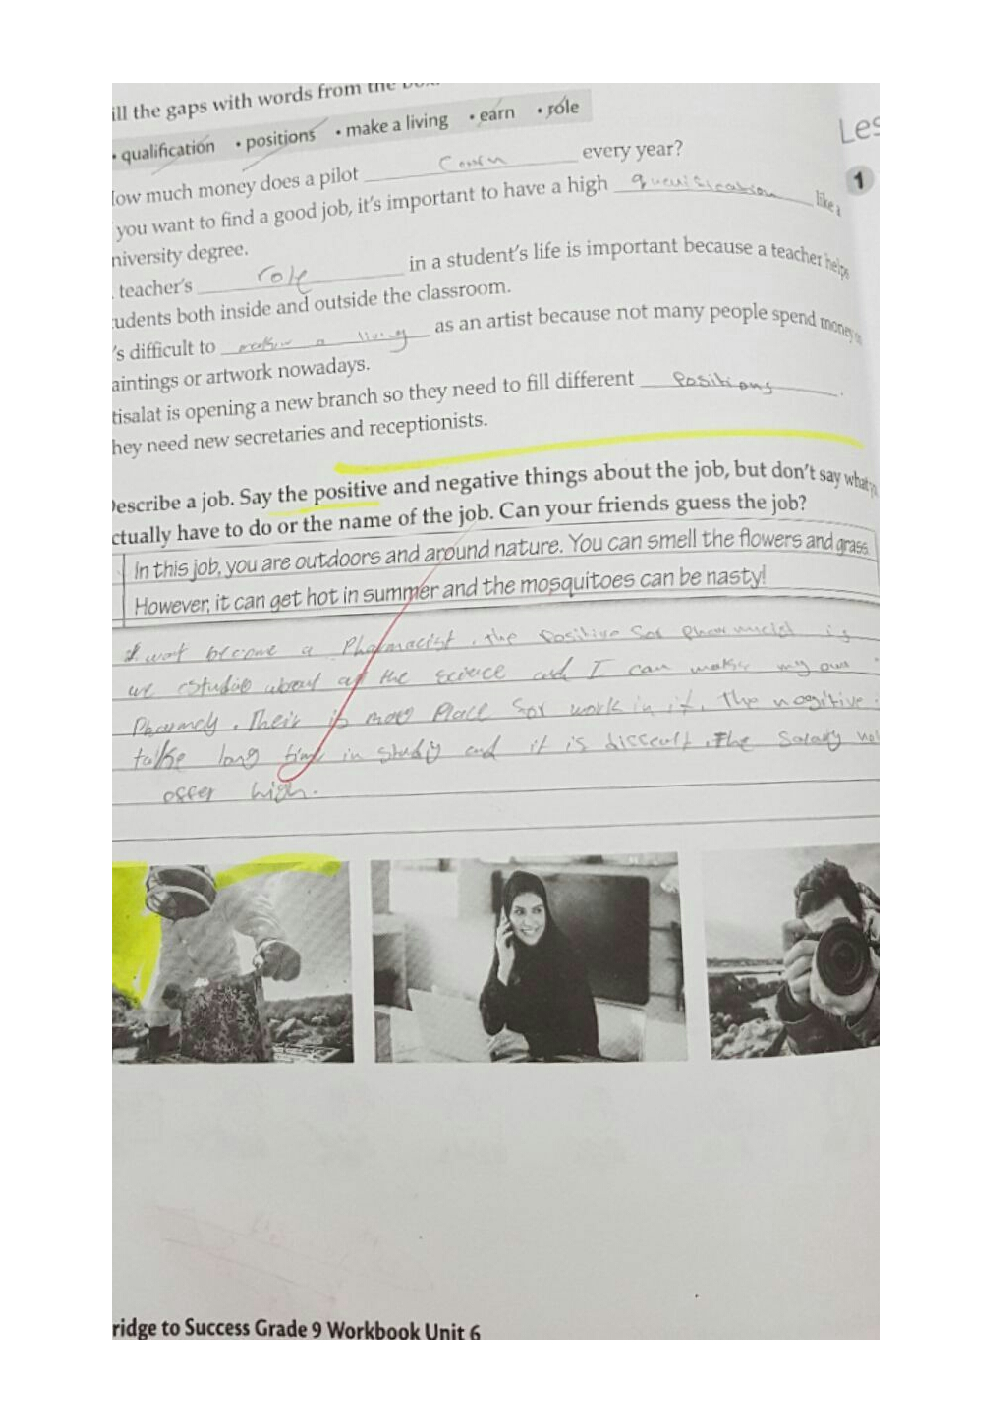 ill the gaps with words from the
• qualification • positions • make a living • earn • role
Les
How much money does a pilot every year?
1
you want to find a good job, it's important to have a high like a
niversity degree.
teacher's role in a student's life is important because a teacher helps
udents both inside and outside the classroom.
's difficult to a living as an artist because not many people spend money
aintings or artwork nowadays.
tisalat is opening a new branch so they need to fill different Positions.
hey need new secretaries and receptionists.
Describe a job. Say the positive and negative things about the job, but don't say what
ctually have to do or the name of the job. Can your friends guess the job?
In this job, you are outdoors and around nature. You can smell the flowers and grass.
However, it can get hot in summer and the mosquitoes can be nasty!
become a Phármacist. the Positive is
we about the science and I can my own
Their is Place for work in it. The nogitive
take long time in study and it is The Salary
offer high.
ridge to Success Grade 9 Workbook Unit 6